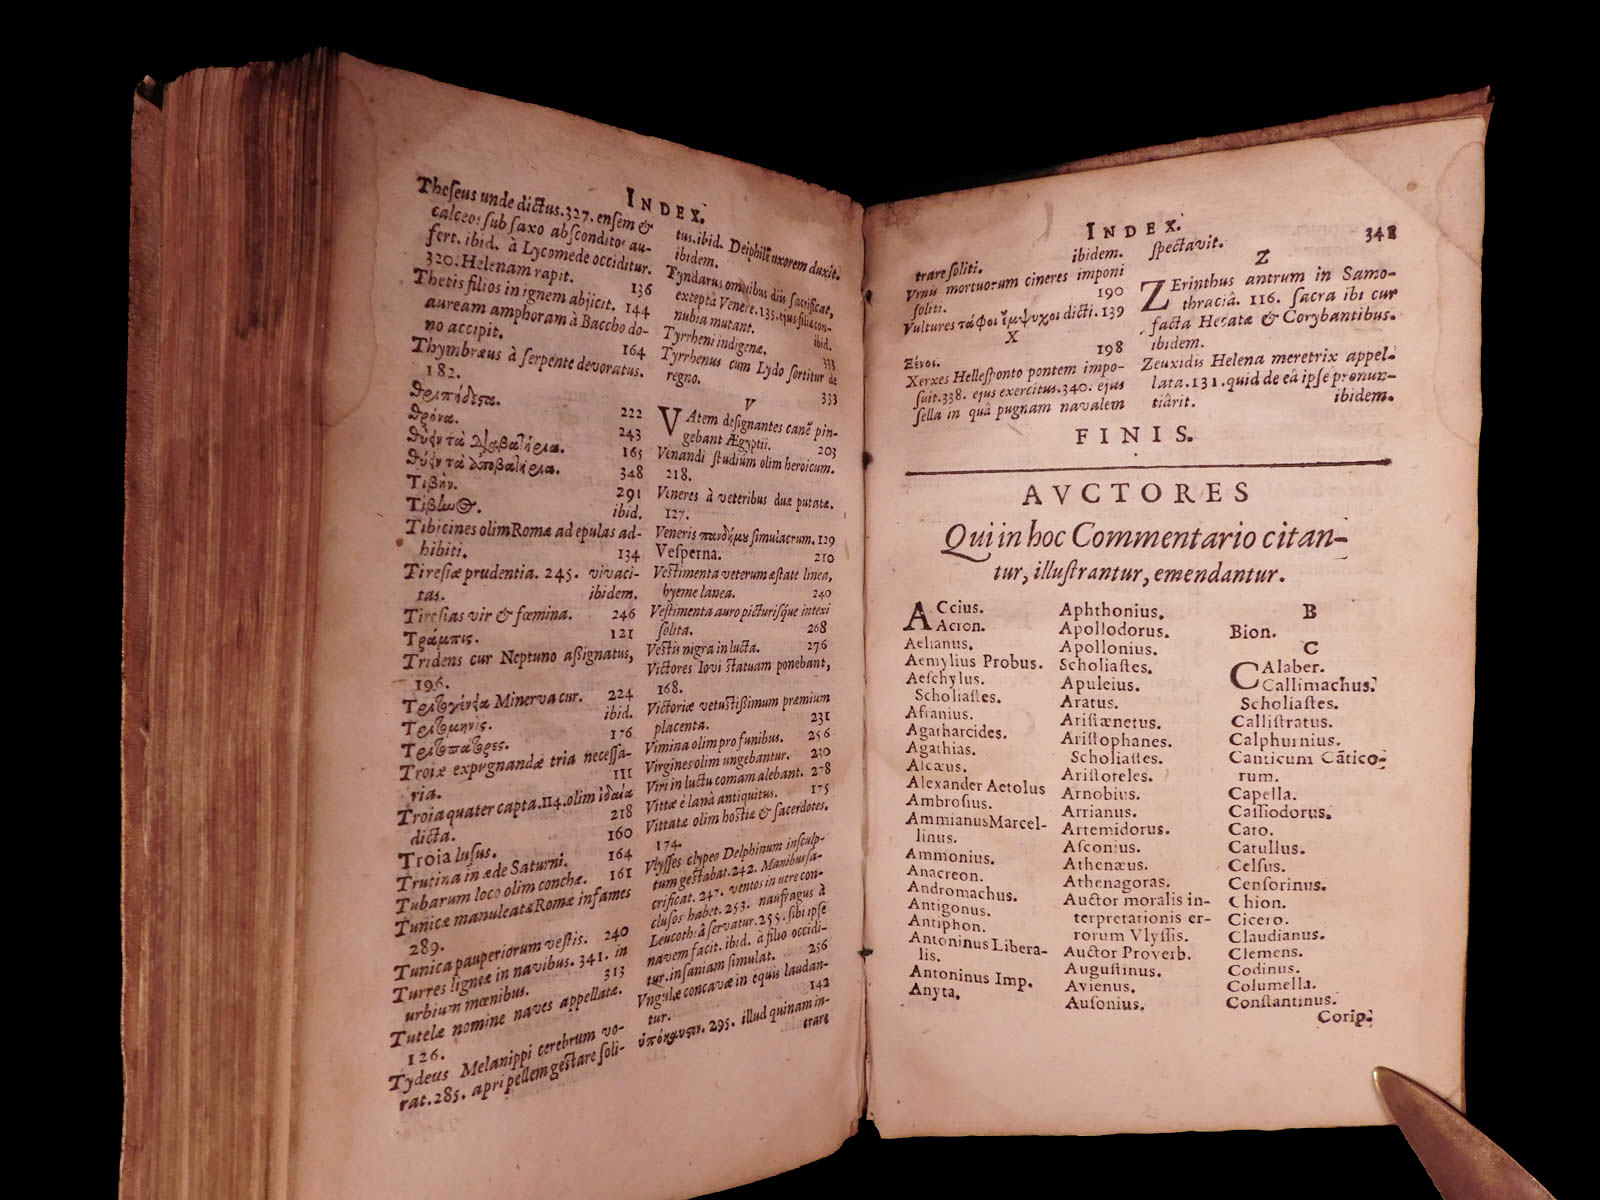 INDEX.
Theſeus unde dictus.327. enſem &
calceos ſub ſaxo abſconditos au-
fert. ibid. à Lycomede occiditur.
320. Helenam rapit. 136
Thetis filios in ignem abjicit. 144
auream amphoram à Baccho do-
no accipit. 164
Thymbræus à ſerpente devoratus.
182.
222
243
165
348
Τιβήν. 291
ibid.
Tibicines olim Romæ ad epulas ad-
hibiti. 134
Tireſiæ prudentia. 245. vivaci-
tas. ibidem.
Tireſias vir & fœmina. 246
Τράμπις. 121
Tridens cur Neptuno aſſignatus,
196.
Minerva cur. 224
ibid.
176
Troiæ expugnandæ tria neceſſa-
ria. 111
Troia quater capta.114.olim
dicta. 218
Troia luſus. 160
Trutina in æde Saturni. 164
Tubarum loco olim conchæ. 161
Tunicæ manuleatæ Romæ infames
289.
Tunica pauperiorum veſtis. 240
Turres ligneæ in navibus. 341. in
urbium mœnibus. 313
Tutelæ nomine naves appellatæ.
126.
Tydeus Melanippi cerebrum vo-
rat.285. apri pellem geſtare ſoli-
tus.ibid. Deiphilē uxorem duxit.
ibidem.
Tyndarus omnibus diis ſacrificat,
exceptâ Venere.135.ejus filiæ con-
nubia mutant. ibid.
Tyrrheni indigenæ. 333
Tyrrhenus cum Lydo ſortitur de
regno. 333
V
VAtem deſignantes canē pin-
gebant Ægyptii. 203
Venandi ſtudium olim heroicum.
218.
Veneres à veteribus duæ putatæ.
127.
Veneris πανδήμου ſimulacrum. 129
Veſperna. 210
Veſtimenta veterum æſtate linea,
hyeme lanea. 240
Veſtimenta auro picturiſque intexi
ſolita. 268
Veſtis nigra in luctu. 276
Victores Iovi ſtatuam ponebant,
168.
Victoriæ vetuſtiſſimum præmium
placenta. 231
Vimina olim pro funibus. 256
Virgines olim ungebantur. 230
Viri in luctu comam alebant. 278
Vittæ è lanâ antiquitus. 175
Vittatæ olim hoſtiæ & ſacerdotes.
174.
Vlyſſes clypeo Delphinum inſculp-
tum geſtabat.242. Manibus ſa-
crificat. 247. ventos in utre con-
cluſos habet. 253. naufragus à
Leucotheâ ſervatur.255. ſibi ipſe
navem facit. ibid. à filio occidi-
tur. inſaniam ſimulat. 256
Vngulæ concavæ in equis laudan-
tur. 142
295. illud quinam in-
trare
INDEX. 348
trare ſoliti. ibidem.
Vrnis mortuorum cineres imponi
ſoliti. 190
Vultures τάφοι ἔμψυχοι dicti. 139
X
Ξένοι. 198
Xerxes Helleſponto pontem impo-
ſuit.338. ejus exercitus.340. ejus
ſella in quâ pugnam navalem
ſpectavit.
Z
ZErinthus antrum in Samo-
thraciâ. 116. ſacra ibi cur
facta Hecatæ & Corybantibus.
ibidem.
Zeuxidis Helena meretrix appel-
lata.131.quid de eâ ipſe pronun-
tiârit. ibidem.
FINIS.
AVCTORES
Qui in hoc Commentario citan-
tur, illuſtrantur, emendantur.
ACcius.
Acron.
Aelianus.
Aemylius Probus.
Aeſchylus.
Scholiaſtes.
Afranius.
Agatharcides.
Agathias.
Alcæus.
Alexander Aetolus
Ambroſius.
Ammianus Marcel-
linus.
Ammonius.
Anacreon.
Andromachus.
Antigonus.
Antiphon.
Antoninus Libera-
lis.
Antoninus Imp.
Anyta.
Aphthonius.
Apollodorus.
Apollonius.
Scholiaſtes.
Apuleius.
Aratus.
Ariſtænetus.
Ariſtophanes.
Scholiaſtes.
Ariſtoteles.
Arnobius.
Arrianus.
Artemidorus.
Aſconius.
Athenæus.
Athenagoras.
Auctor moralis in-
terpretationis er-
rorum Vlyſſis.
Auctor Proverb.
Auguſtinus.
Avienus.
Auſonius.
B
Bion.
C
CAlaber.
Callimachus.
Scholiaſtes.
Calliſtratus.
Calphurnius.
Canticum Cãtico-
rum.
Capella.
Caſſiodorus.
Cato.
Catullus.
Celſus.
Cenſorinus.
Chion.
Cicero.
Claudianus.
Clemens.
Codinus.
Columella.
Conſtantinus.
Corip.